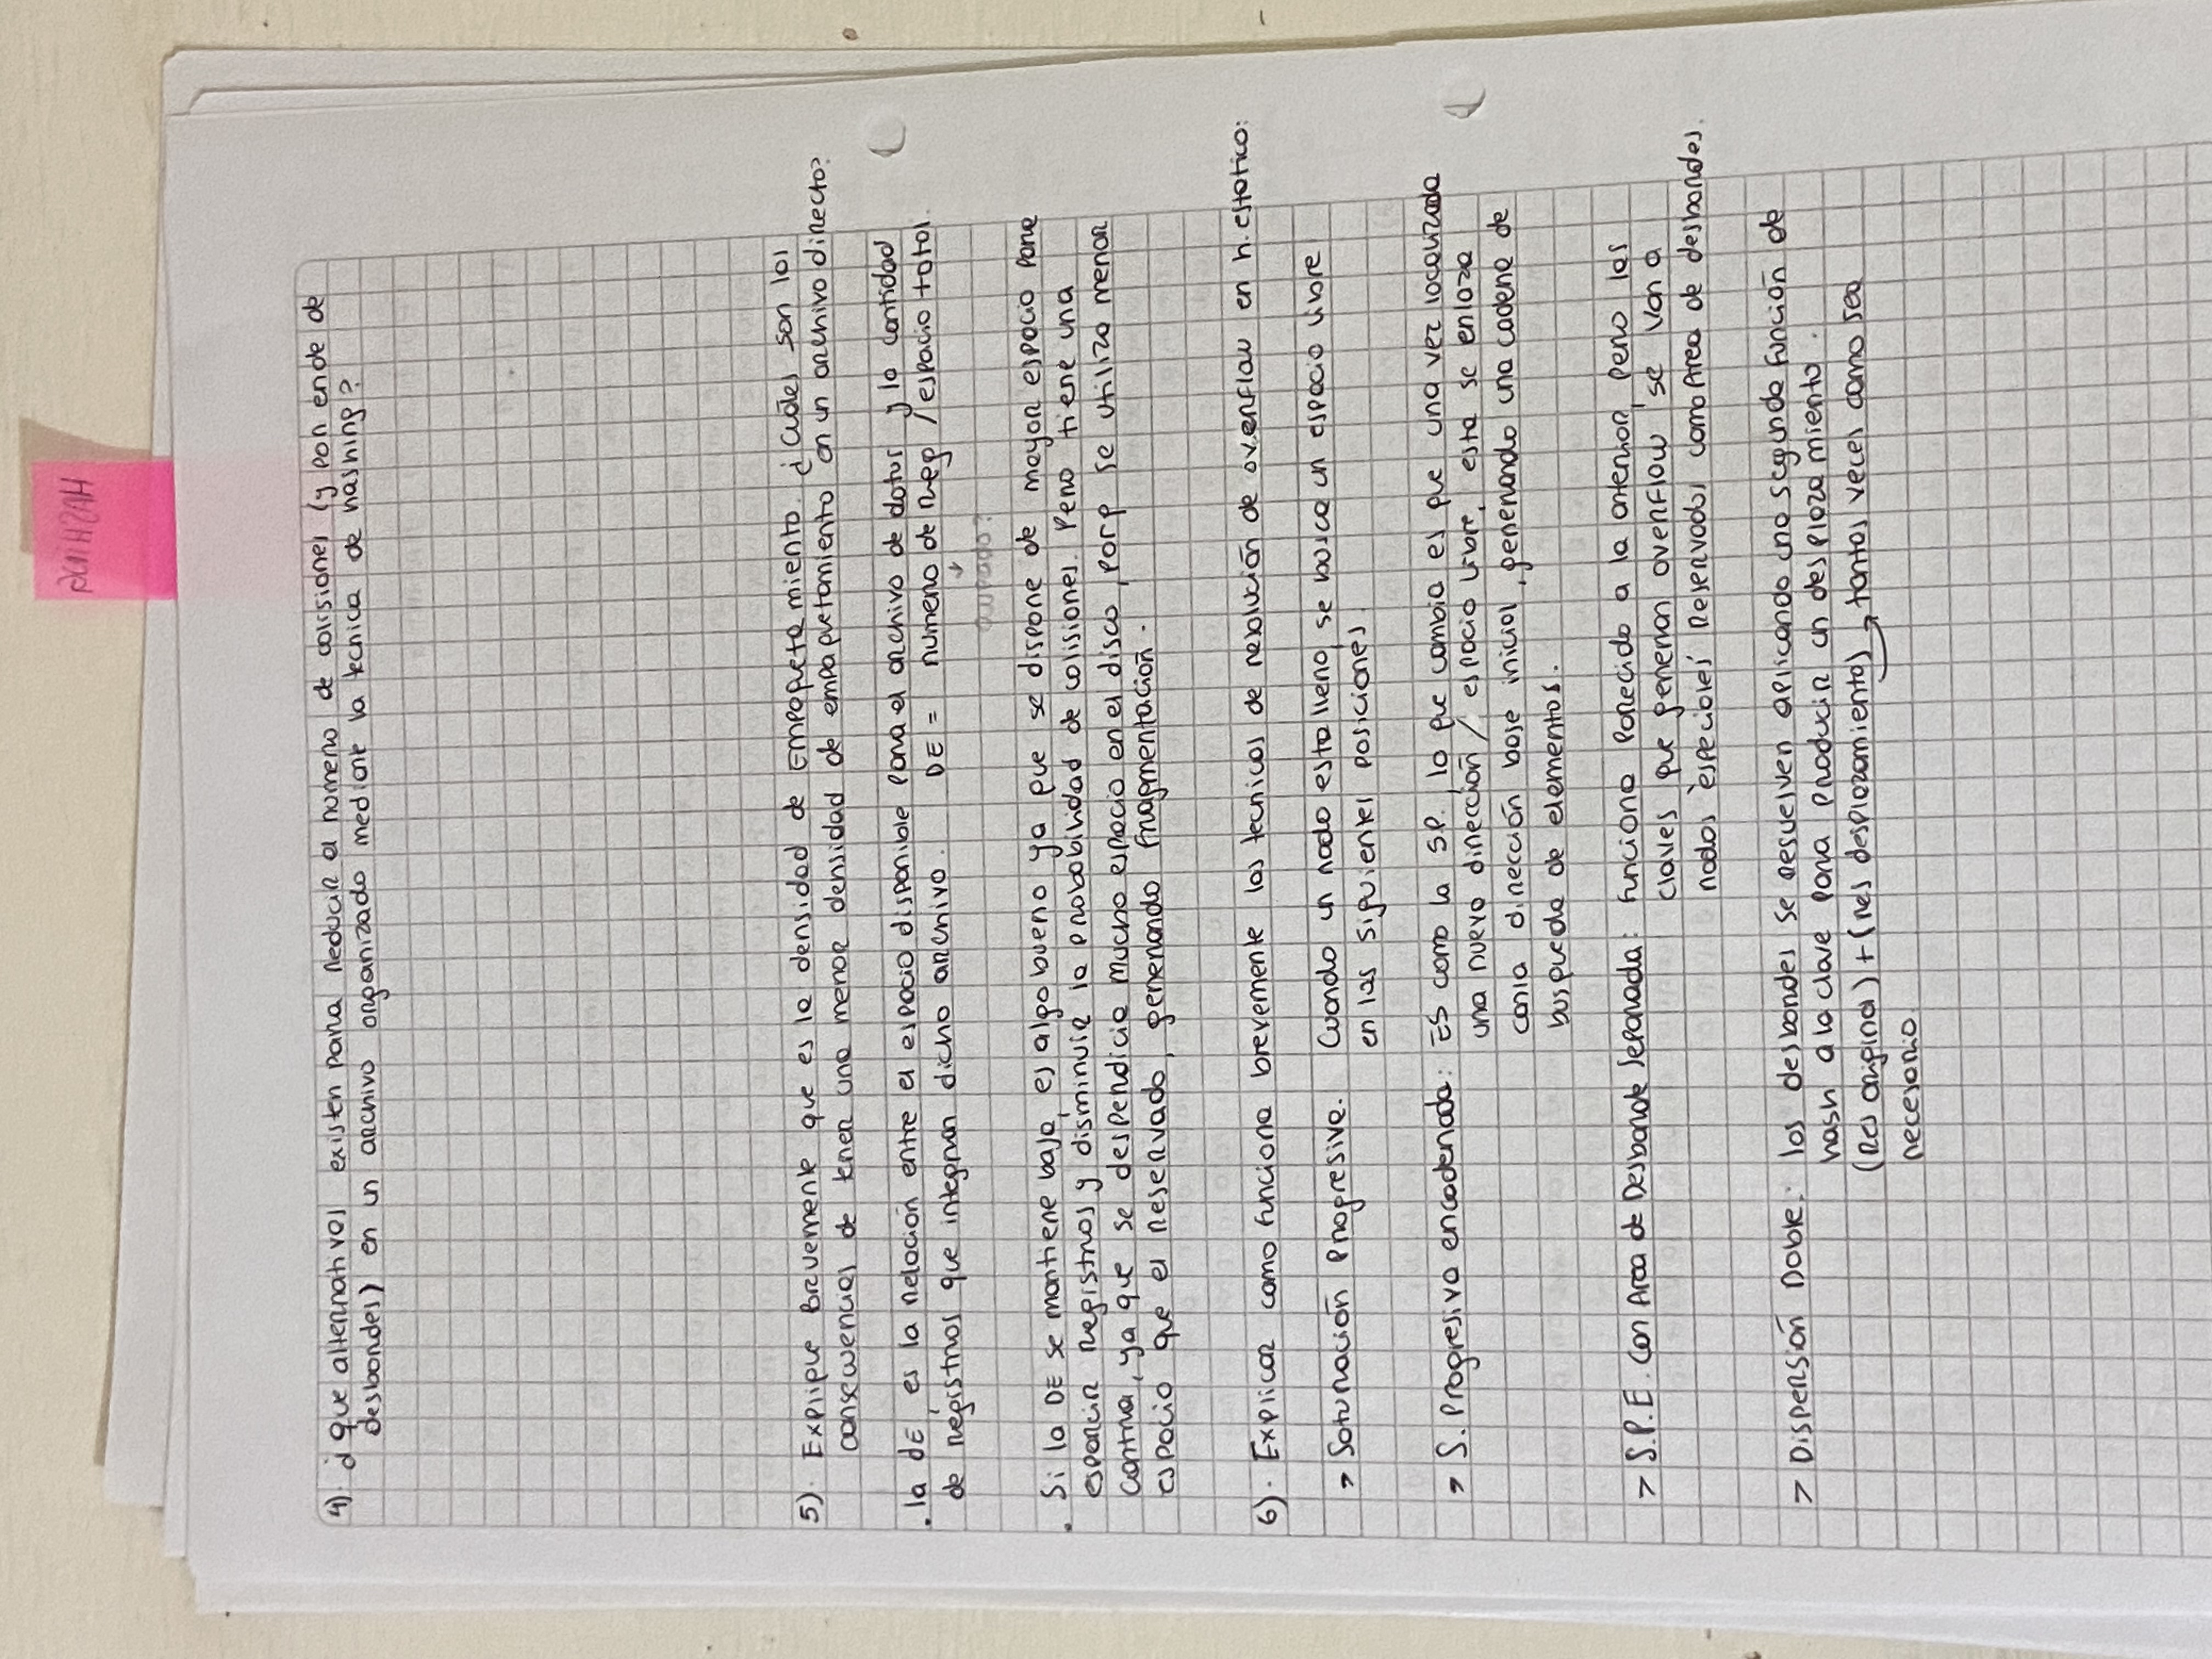 HASHING
4) ¿que alternativas existen para reducir el numero de colisiones (y por ende de
desbordes) en un archivo organizado mediante la tecnica de hashing?
5). Explique Brevemente que es la densidad de Empaquetamiento. ¿Cuáles son las
consecuencias de tener una menor densidad de empaquetamiento en un archivo directo?
. la dE, es la relación entre el espacio disponible para el archivo de datos y la cantidad
de registros que integran dicho archivo. DE = numero de reg / espacio total.
↓
. Si la DE se mantiene baja, es algo bueno ya que se dispone de mayor espacio para
esparcir registros y disminuir la probabilidad de colisiones. Pero tiene una
contra, ya que se desperdicia mucho espacio en el disco, porq se utiliza menor
espacio que el reservado, generando fragmentación.
6). Explicar como funciona brevemente las tecnicas de resolución de overflow en h. estatico:
> Saturación Progresiva. Cuando un nodo esta lleno, se busca un espacio libre
en las siguientes posiciones
> S. Progresiva encadenada: ES como la S.P., lo que cambia es que una vez localizada
una nueva dirección / espacio libre, esta se enlaza
con la dirección base inicial, generando una cadena de
busqueda de elementos.
> S.P.E. Con Area de Desborde Separada: funciona parecido a la anterior, pero las
claves que generan overflow se van a
nodos 'especiales' reservados como Area de desbordes.
> Dispersión Doble: los desbordes se resuelven aplicando una segunda función de
hash a la clave para producir un desplazamiento.
(Res original) + (res desplazamiento) → tantas veces como sea
necesario